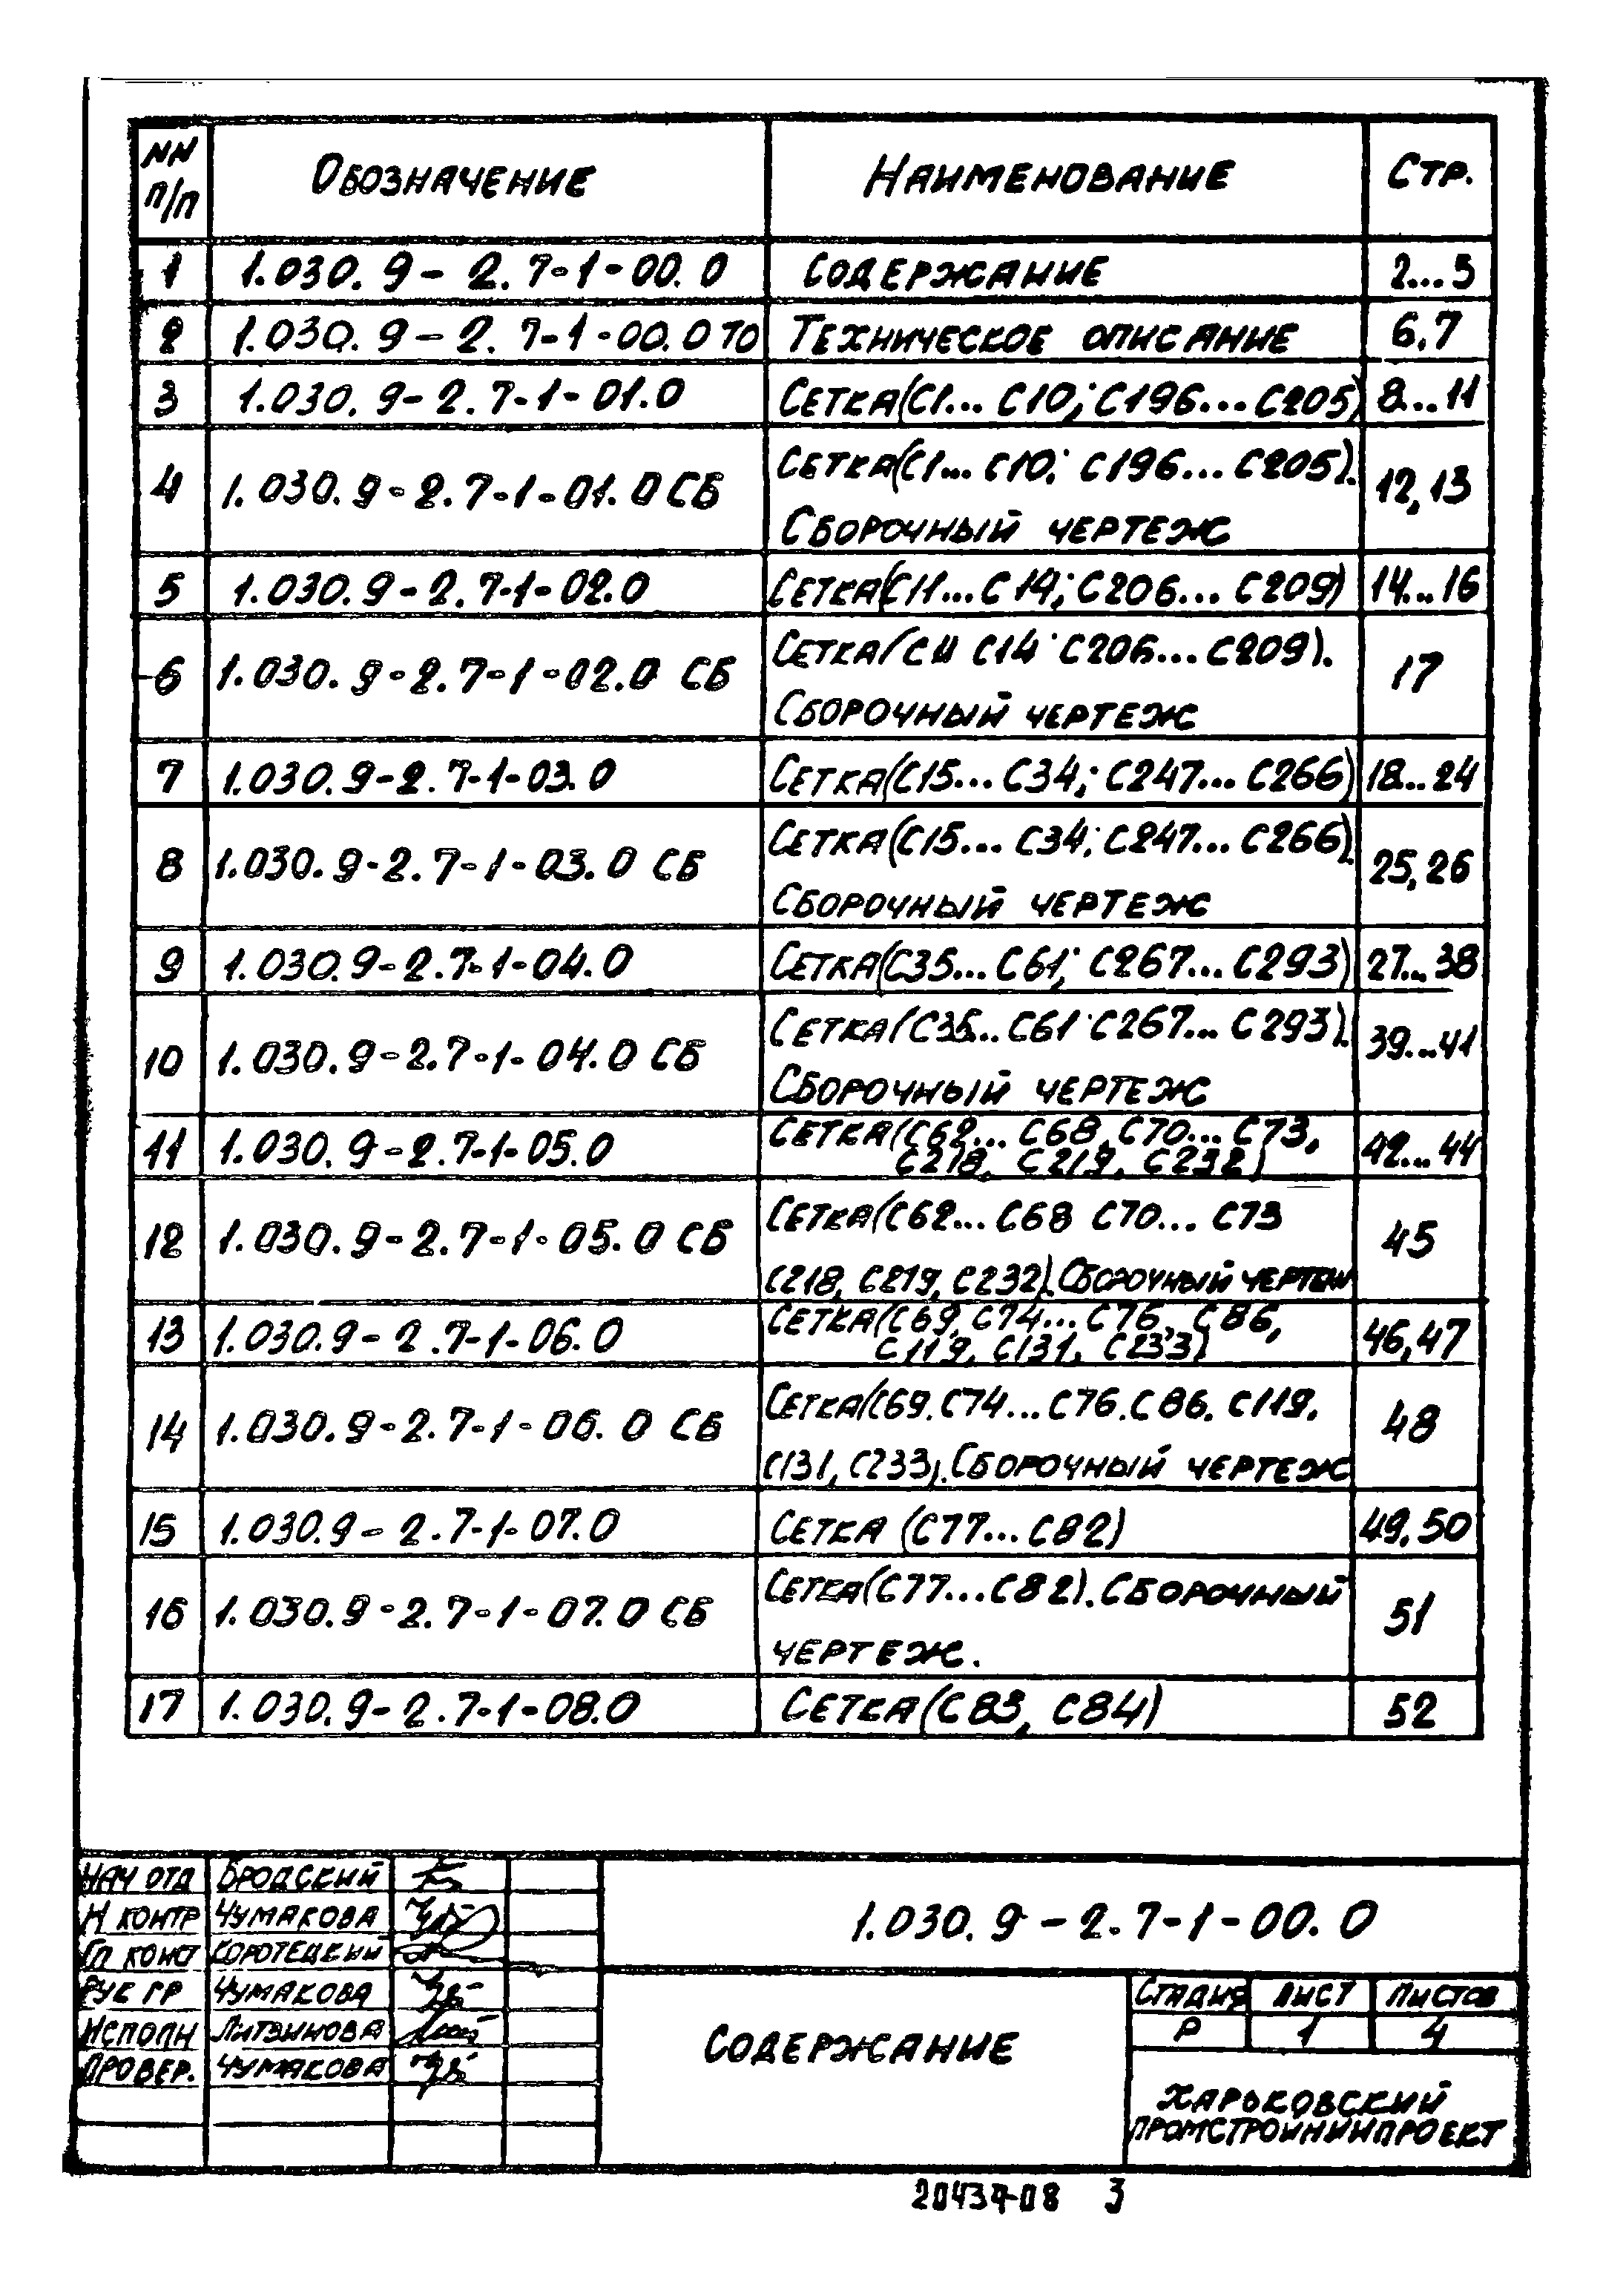 NN п/п Обозначение Наименование Стр.
1 1.030.9-2.7-1-00.0 Содержание 2...5
2 1.030.9-2.7-1-00.0 ТО Техническое описание 6,7
3 1.030.9-2.7-1-01.0 Сетка(С1...С10; С196...С205) 8...11
4 1.030.9-2.7-1-01.0 СБ Сетка(С1...С10; С196...С205). 12,13
Сборочный чертеж
5 1.030.9-2.7-1-02.0 Сетка(С11...С14; С206...С209) 14...16
6 1.030.9-2.7-1-02.0 СБ Сетка(С11 С14 С206...С209). 17
Сборочный чертеж
7 1.030.9-2.7-1-03.0 Сетка(С15...С34; С247...С266) 18...24
8 1.030.9-2.7-1-03.0 СБ Сетка(С15...С34; С247...С266). 25,26
Сборочный чертеж
9 1.030.9-2.7-1-04.0 Сетка(С35...С61; С267...С293) 27...38
10 1.030.9-2.7-1-04.0 СБ Сетка(С35...С61 С267...С293). 39...41
Сборочный чертеж
11 1.030.9-2.7-1-05.0 Сетка(С62...С68, С70...С73, 42...44
С218, С219, С232)
12 1.030.9-2.7-1-05.0 СБ Сетка(С62...С68 С70...С73 45
С218, С219, С232). Сборочный чертеж
13 1.030.9-2.7-1-06.0 Сетка(С69, С74...С76, С86, 46,47
С119, С131, С233)
14 1.030.9-2.7-1-06.0 СБ Сетка(С69, С74...С76, С86, С119, 48
С131, С233). Сборочный чертеж
15 1.030.9-2.7-1-07.0 Сетка (С77...С82) 49,50
16 1.030.9-2.7-1-07.0 СБ Сетка(С77...С82). Сборочный 51
чертеж.
17 1.030.9-2.7-1-08.0 Сетка(С83, С84) 52
Нач отд Бродский
Н контр Чумакова
Гл конст Коротецкий
Рук гр Чумакова
Исполн Литвинова
Провер. Чумакова
1.030.9-2.7-1-00.0
Содержание
Стадия Лист Листов
Р 1 4
Харьковский
Промстройниипроект
20437-08 3